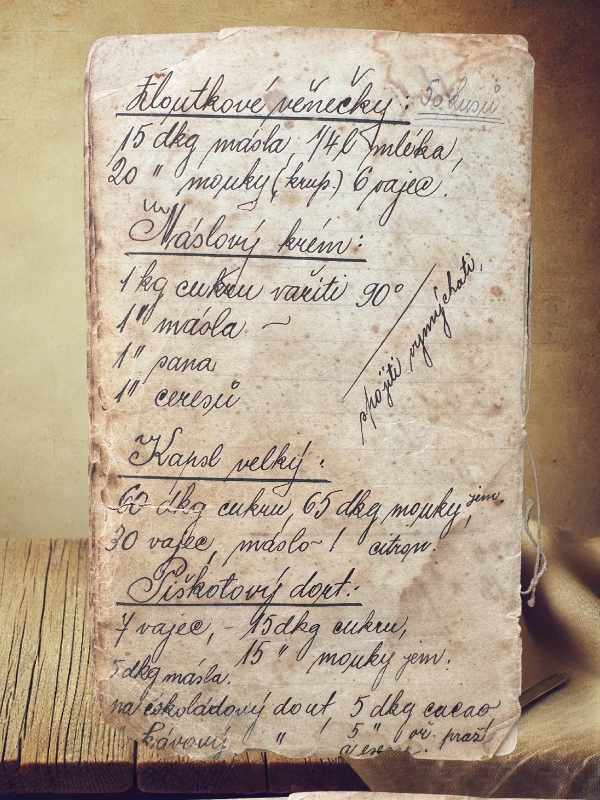 Žloutkové věnečky: 50 kusů
15 dkg másla 1/4 l mléka,
20 " mouky (krup.) 6 vajec.
Máslový krém:
1 kg cukru vařiti 90°
1 " másla ~
1 " sana
1 " ceresů
spojiti vymýchati.
Kapsl velký:
60 dkg cukru, 65 dkg mouky, jem.
30 vajec, máslo ~ ! citron.
Piškotový dort:-
7 vajec, - 15 dkg cukru,
15 " mouky jem.
5 dkg másla.
na čokoládový dort, 5 dkg cacao
" kávový " 5 " oř. praž.